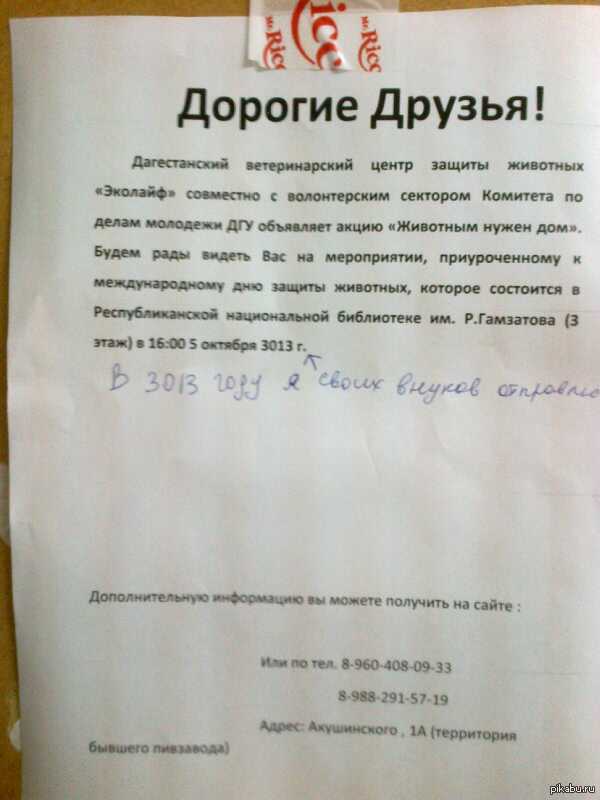 Mr.Ricco
Mr.Ricc
Дорогие Друзья!
Дагестанский ветеринарский центр защиты животных
«Эколайф» совместно с волонтерским сектором Комитета по
делам молодежи ДГУ объявляет акцию «Животным нужен дом».
Будем рады видеть Вас на мероприятии, приуроченному к
международному дню защиты животных, которое состоится в
Республиканской национальной библиотеке им. Р.Гамзатова (3
этаж) в 16:00 5 октября 3013 г.
В 3013 году я своих внуков отправлю
Дополнительную информацию вы можете получить на сайте :
Или по тел. 8-960-408-09-33
8-988-291-57-19
Адрес: Акушинского , 1А (территория
бывшего пивзавода)
pikabu.ru